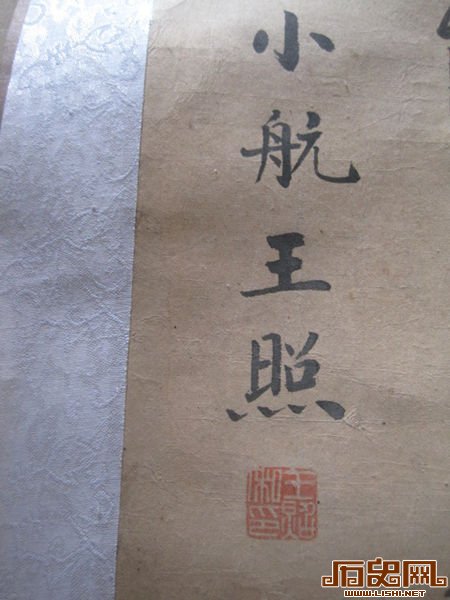 小航王照
历史网
WWW.LISHI.NET